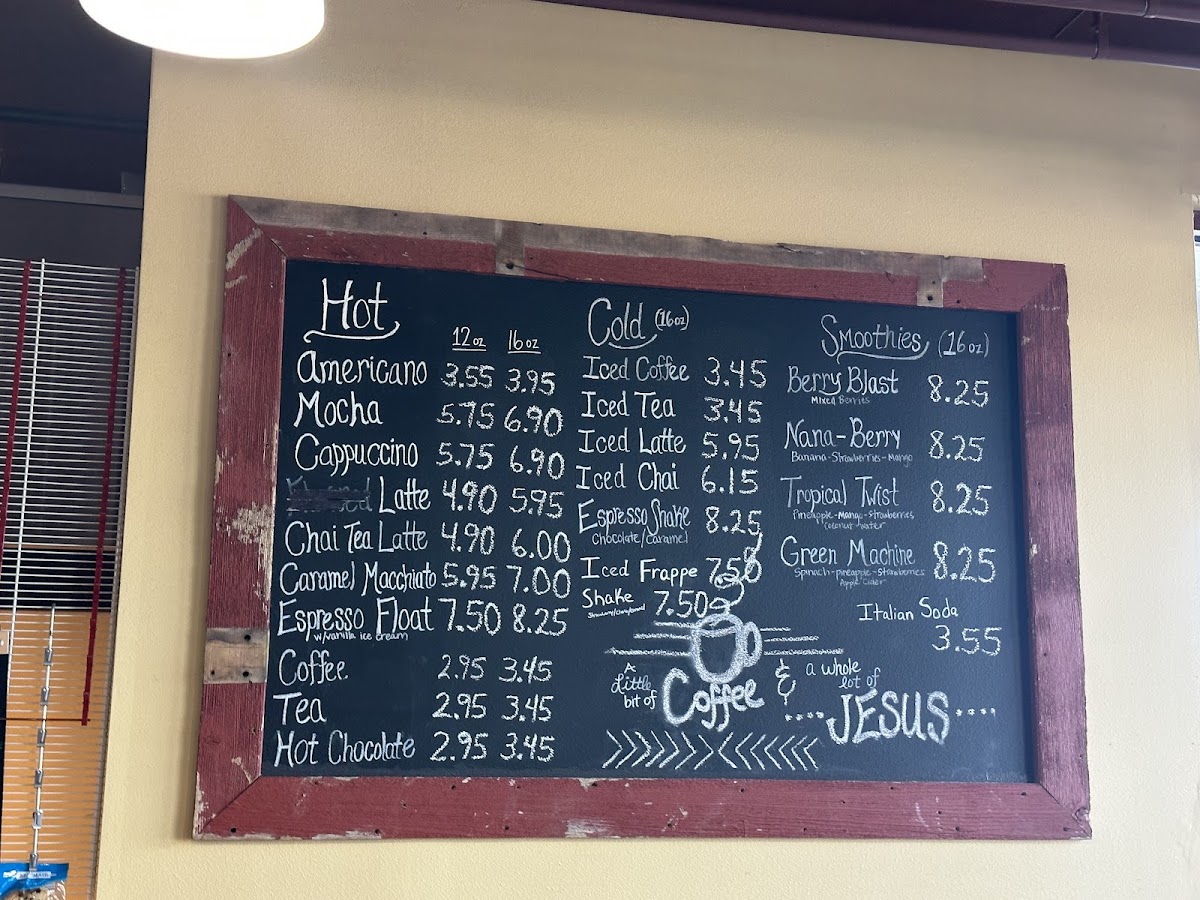 Hot
12oz 16oz
Americano 3.55 3.95
Mocha 5.75 6.90
Cappuccino 5.75 6.90
Latte 4.90 5.95
Chai Tea Latte 4.90 6.00
Caramel Macchiato 5.95 7.00
Espresso Float 7.50 8.25
w/vanilla ice cream
Coffee 2.95 3.45
Tea 2.95 3.45
Hot Chocolate 2.95 3.45
Cold (16oz)
Iced Coffee 3.45
Iced Tea 3.45
Iced Latte 5.95
Iced Chai 6.15
Espresso Shake 8.25
Chocolate/Caramel
Iced Frappe 7.50
Shake 7.50
A Little bit of Coffee & a whole lot of JESUS
Smoothies (16oz)
Berry Blast 8.25
Mixed Berries
Nana-Berry 8.25
Banana-Strawberries-Mango
Tropical Twist 8.25
Pineapple-Mango-Strawberries
Coconut water
Green Machine 8.25
Spinach-pineapple-Strawberries
Apple Cider
Italian Soda
3.55